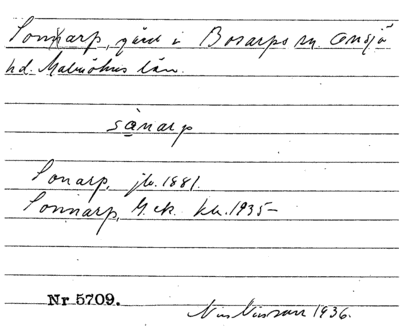 Sonnarp, gård i Bosarps sn. Onsjö
hd. Malmöhus län.
sànarp
Sonarp, jb. 1881.
Sonnarp, G.ek. kb. 1935-
Nr 5709.
Nils Nilsson 1936.